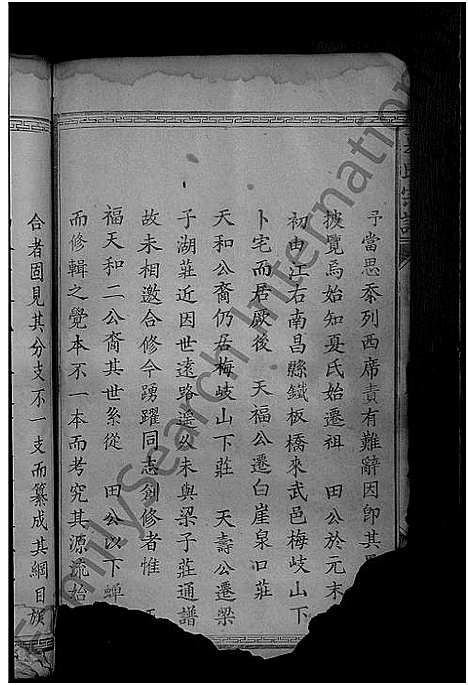 予當思忝列西席責有難辭因卽其
披覽焉始知夏氏始遷祖 田公於元末
初由江右南昌縣鐵板橋來武邑梅岐山下
卜宅而居厥後 天福公遷白崖泉口莊
天和公裔仍居梅岐山下莊 天壽公遷梁
子湖莊近因世遠路遥公未與梁子莊通譜
故未相邀合修今踴躍同志創修者惟
福天和二公裔其世系從 田公以下蟬
而修輯之覺本不一本而考究其源流始
合者固見其分支不一支而纂成其綱目族
FamilySearch International